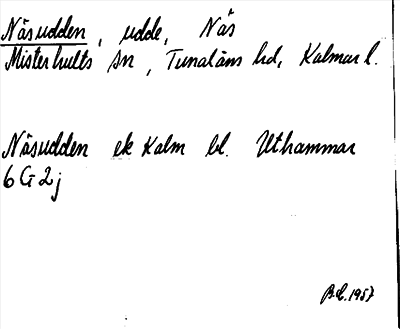 Näsudden, udde, Näs
Misterhults sn, Tunaläns hd, Kalmar l.
Näsudden ek Kalm bl. Uthammar
6 G 2 j
B.L. 1957